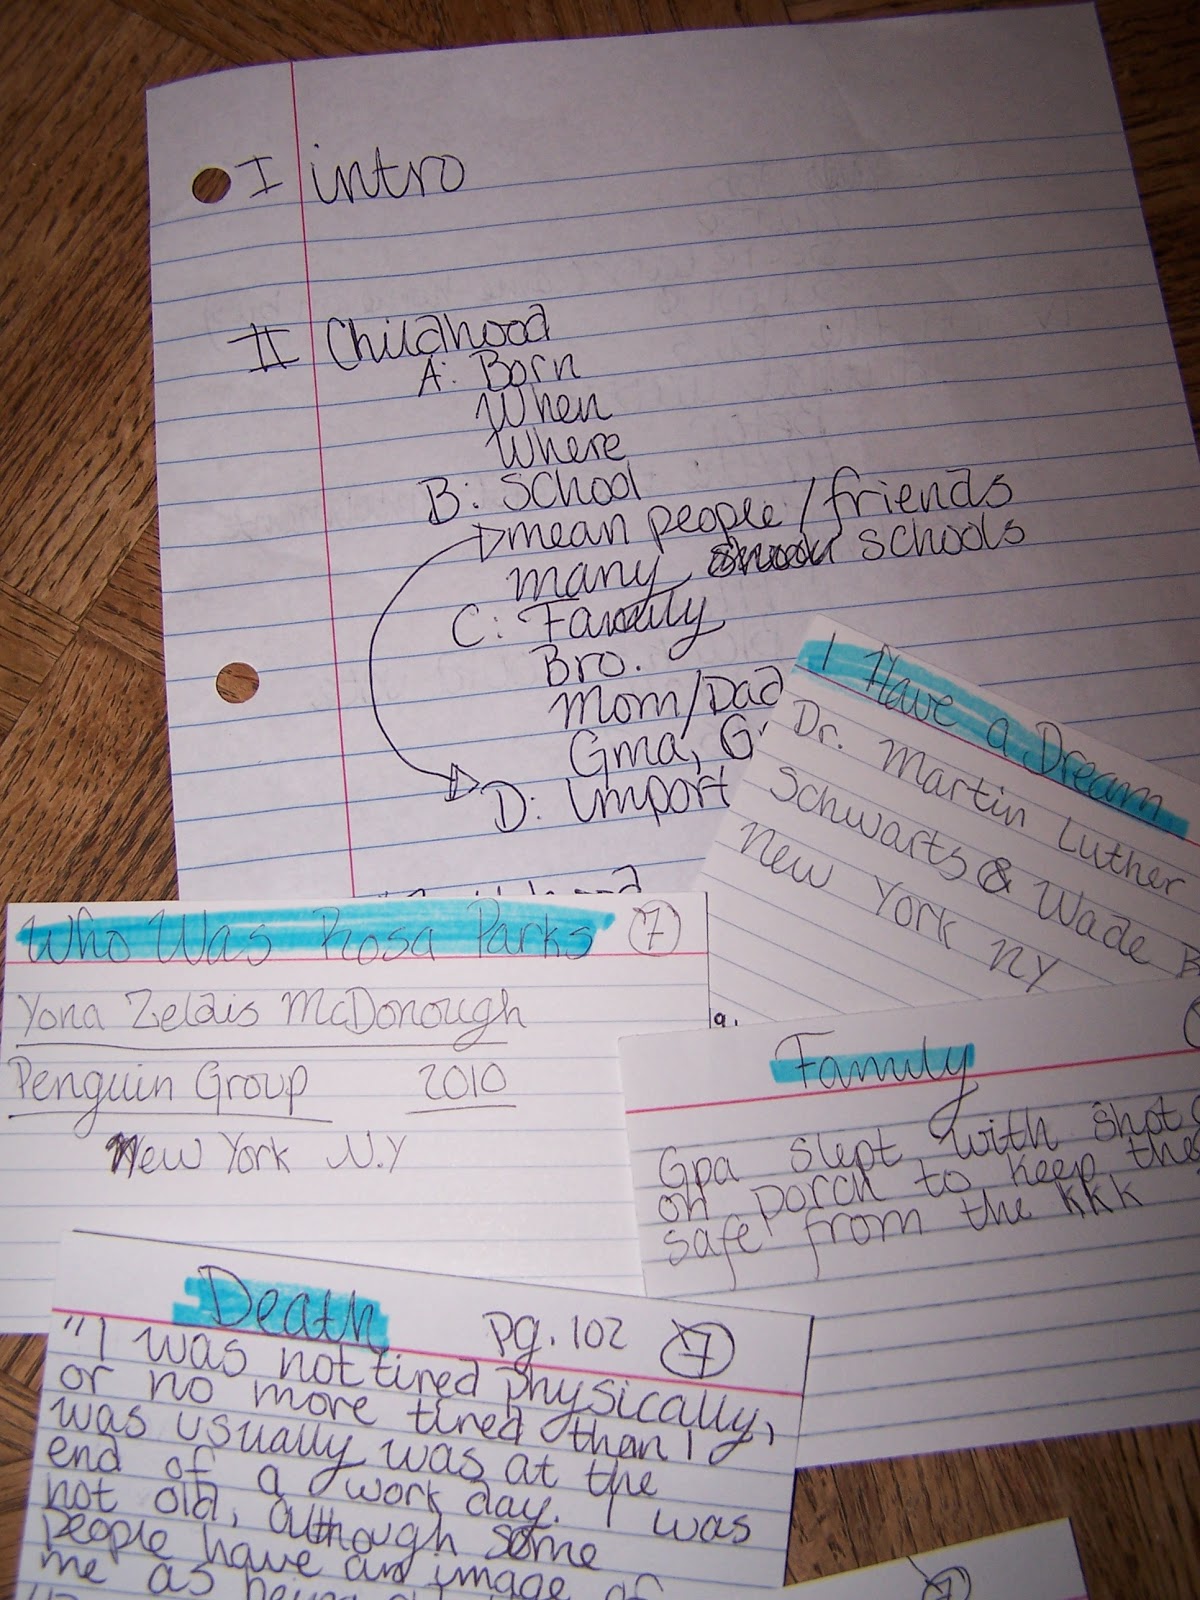 I intro
II Childhood
A: Born
When
Where
B: School
mean people/friends
many schools
C: Family
Bro.
Mom/Dad
Gma, G
D: Import
I Have a Dream
Dr. Martin Luther
Schwarts & Wade B
New York NY
Who Was Rosa Parks 7
Yona Zeldis McDonough
Penguin Group 2010
New York N.Y
Family
Gpa slept with shot
on porch to keep the
safe from the KKK
Death pg. 102 7
"I was not tired physically,
or no more tired than I
was usually was at the
end of a work day. I was
not old, although some
people have an image of
me as being
7